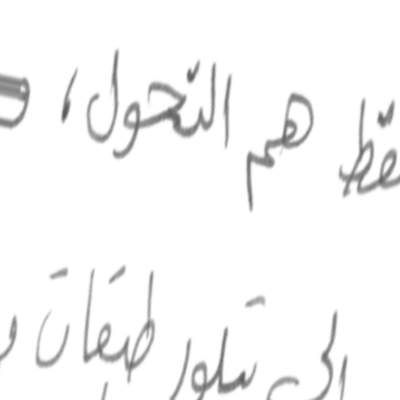 فقط هم التحول ،
إلى تبلور طبقات و